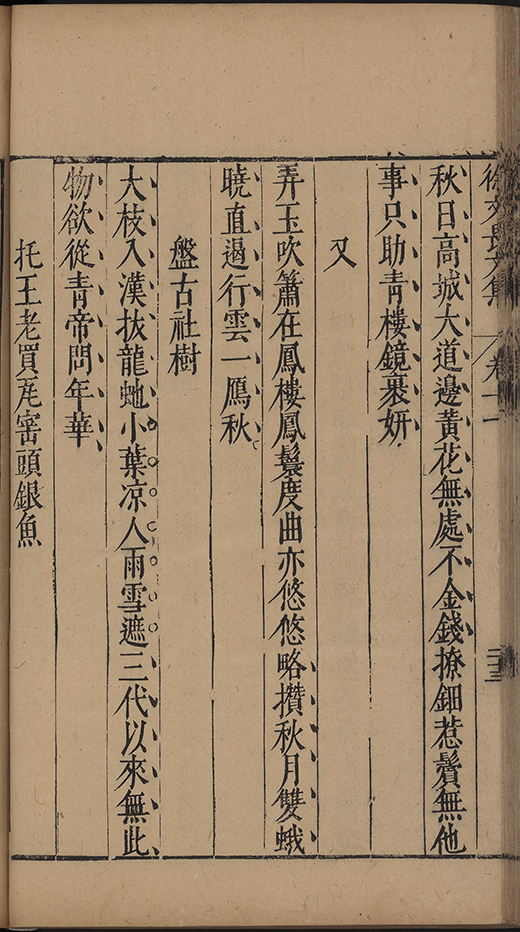 徐文長文集 卷十一 二十三
秋日高城大道邊黃花無處不金錢撩鈿惹鬢無他
事只助青樓鏡裹妍
又
弄玉吹簫在鳳樓鳳鬟度曲亦悠悠略攢秋月雙蛾
曉直遏行雲一鴈秋
盤古社樹
大枝入漢拔龍虵小葉凉人雨雪遮三代以來無此
物欲從青帝問年華
托王老買瓦窑頭銀魚